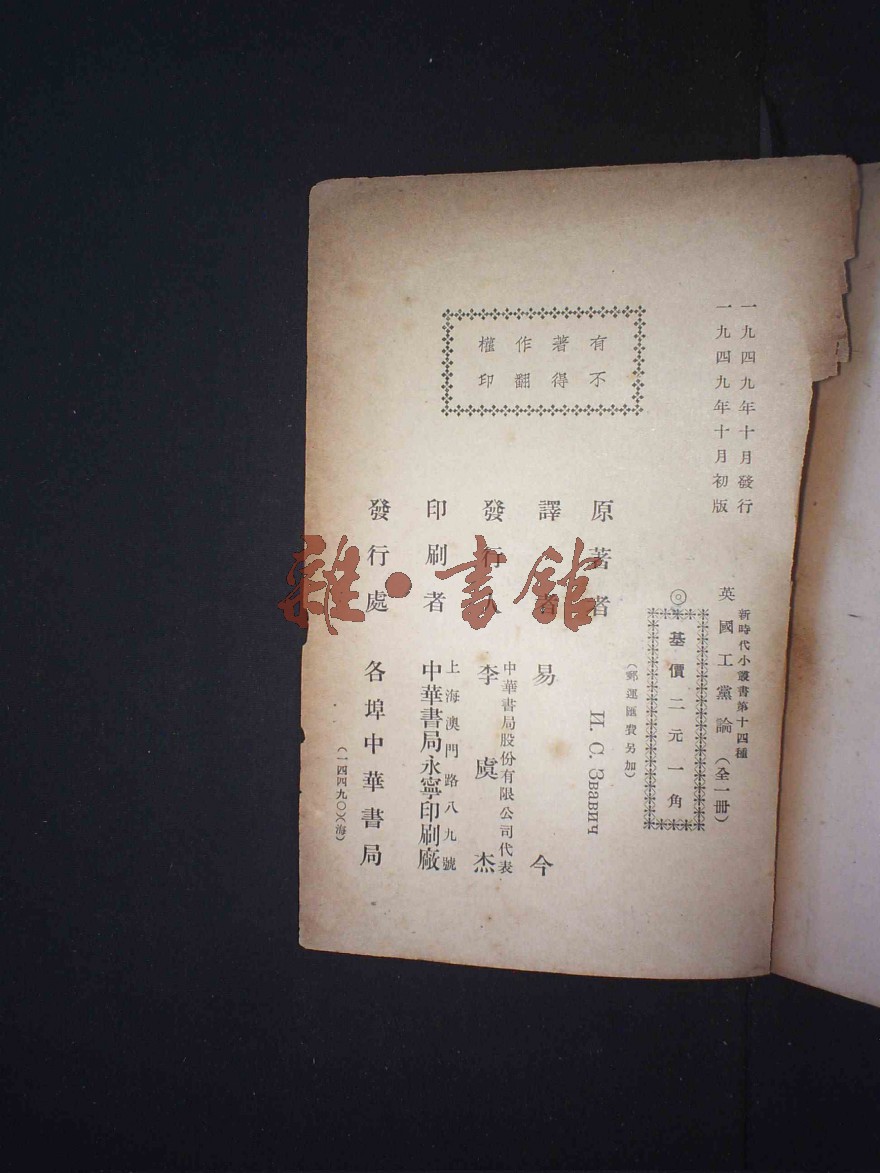 一九四九年十月發行
一九四九年十月初版
新時代小叢書第十四種
英國工黨論(全一冊)
◎基價二元一角
(郵運匯費另加)
有著作權
不得翻印
原著者 И. С. Звавич
譯者 易今
發行人 中華書局股份有限公司代表
李虞杰
印刷者 上海澳門路八九號
中華書局永寧印刷廠
發行處 各埠中華書局
(一四四九〇)(海)
雜·書館